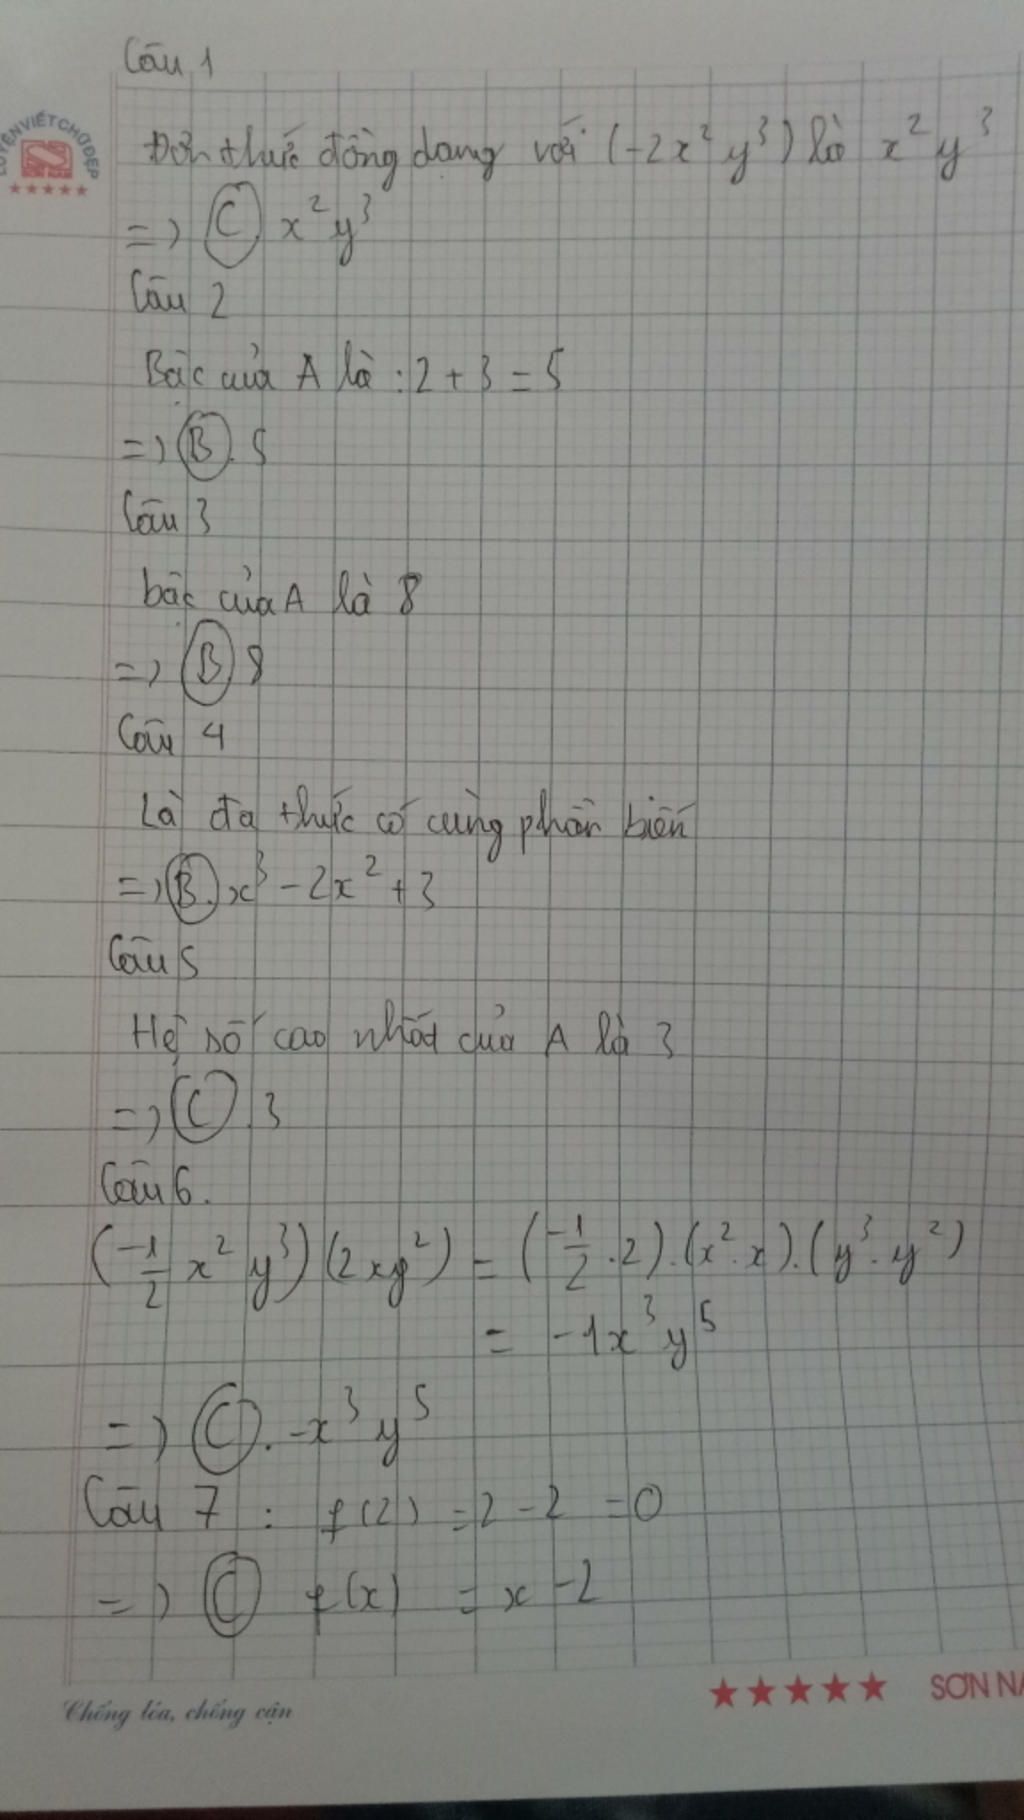 Câu 1
LUYỆN VIẾT CHỮ ĐẸP
Đơn thức đồng dạng với (-2x² y³) là x² y³
=> C x² y³
Câu 2
Bậc của A là : 2 + 3 = 5
=> B. 5
Câu 3
bậc của A là 8
=> B 8
Câu 4
Là đa thức có cùng phần biến
=> B. x³ - 2x² + 3
Câu 5
Hệ số cao nhất của A là 3
=> C. 3
Câu 6.
(-1/2 x² y³) (2xy²) = (-1/2 . 2) . (x² . x) . (y³ . y²)
= -1x³ y⁵
=> C. -x³ y⁵
Câu 7 : f(2) = 2 - 2 = 0
=> C f(x) = x - 2
Chống lóa, chống cận
SƠN